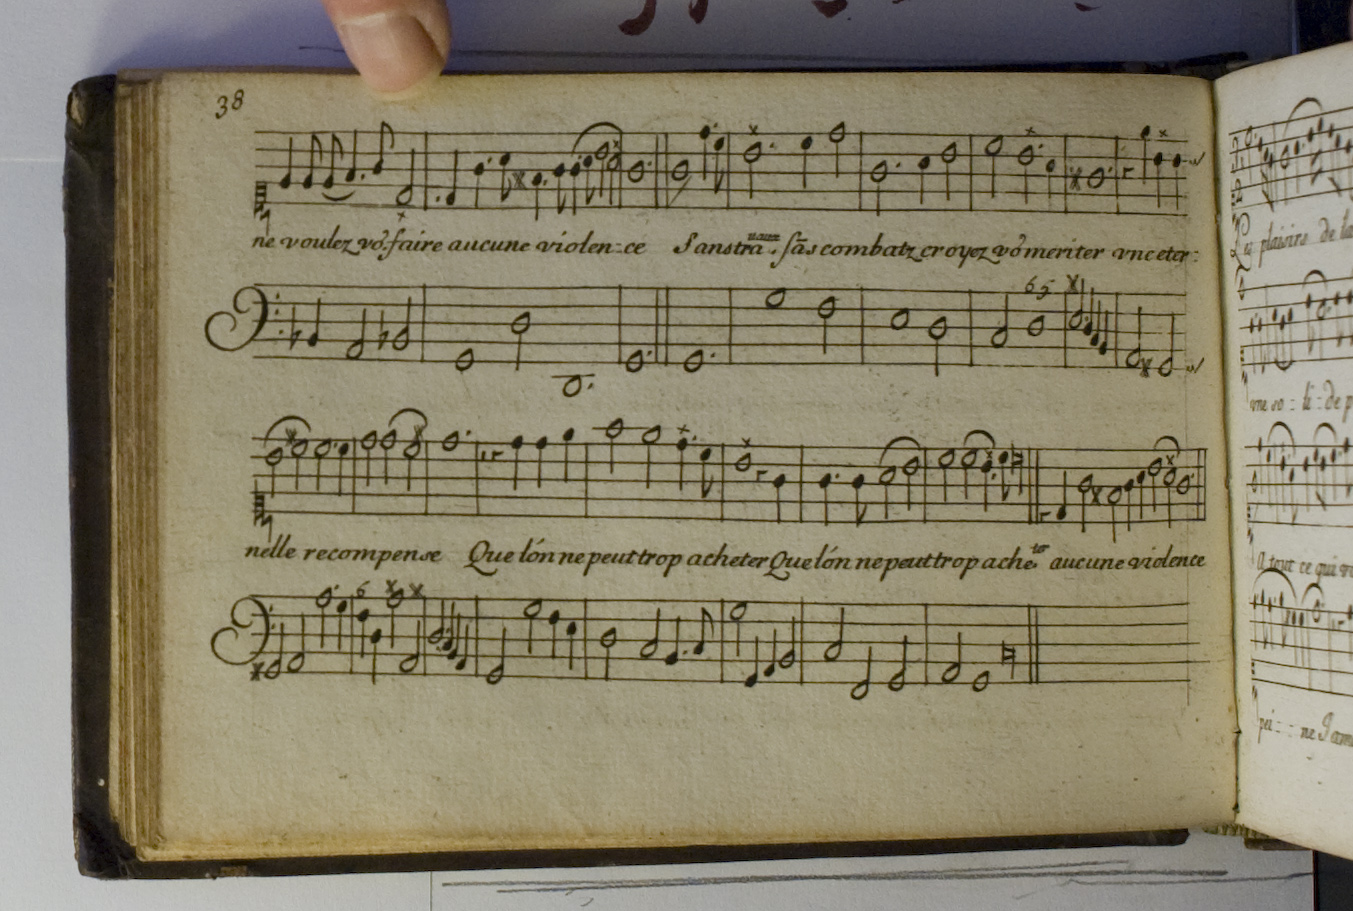 38
ne voulez vo9 faire aucune violen-:-ce Sans tra-vaux sãs combatz croyez vo9 meriter vne eter-:
6 5
nelle recompense Que lón ne peut trop acheter Que lón ne peut trop acheter aucune violence
6
plaisirs de la
vne so-:-li-:-de
A tout ce qui
pei-:-:-ne